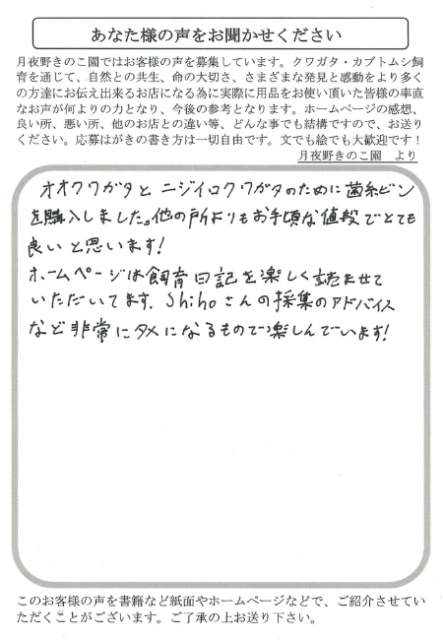 あなた様の声をお聞かせください
月夜野きのこ園ではお客様の声を募集しています。クワガタ・カブトムシ飼
育を通じて、自然との共生、命の大切さ、さまざまな発見と感動をより多く
の方達にお伝え出来るお店になる為に実際に用品をお使い頂いた皆様の率直
なお声が何よりの力となり、今後の参考となります。ホームページの感想、
良い所、悪い所、他のお店との違い等、どんな事でも結構ですので、お送り
ください。応募はがきの書き方は一切自由です。文でも絵でも大歓迎です！
月夜野きのこ園 より
オオクワガタとニジイロクワガタのために菌糸ビン
を購入しました。他の所よりもお手頃な値段でとても
良いと思います!
ホームページは飼育日記を楽しく読ませて
いただいてます。Shihoさんの採集のアドバイス
など非常にタメになるもので楽しんでいます!
このお客様の声を書籍など紙面やホームページなどで、ご紹介させてい
ただくことがございます。ご了承の上お送り下さい。